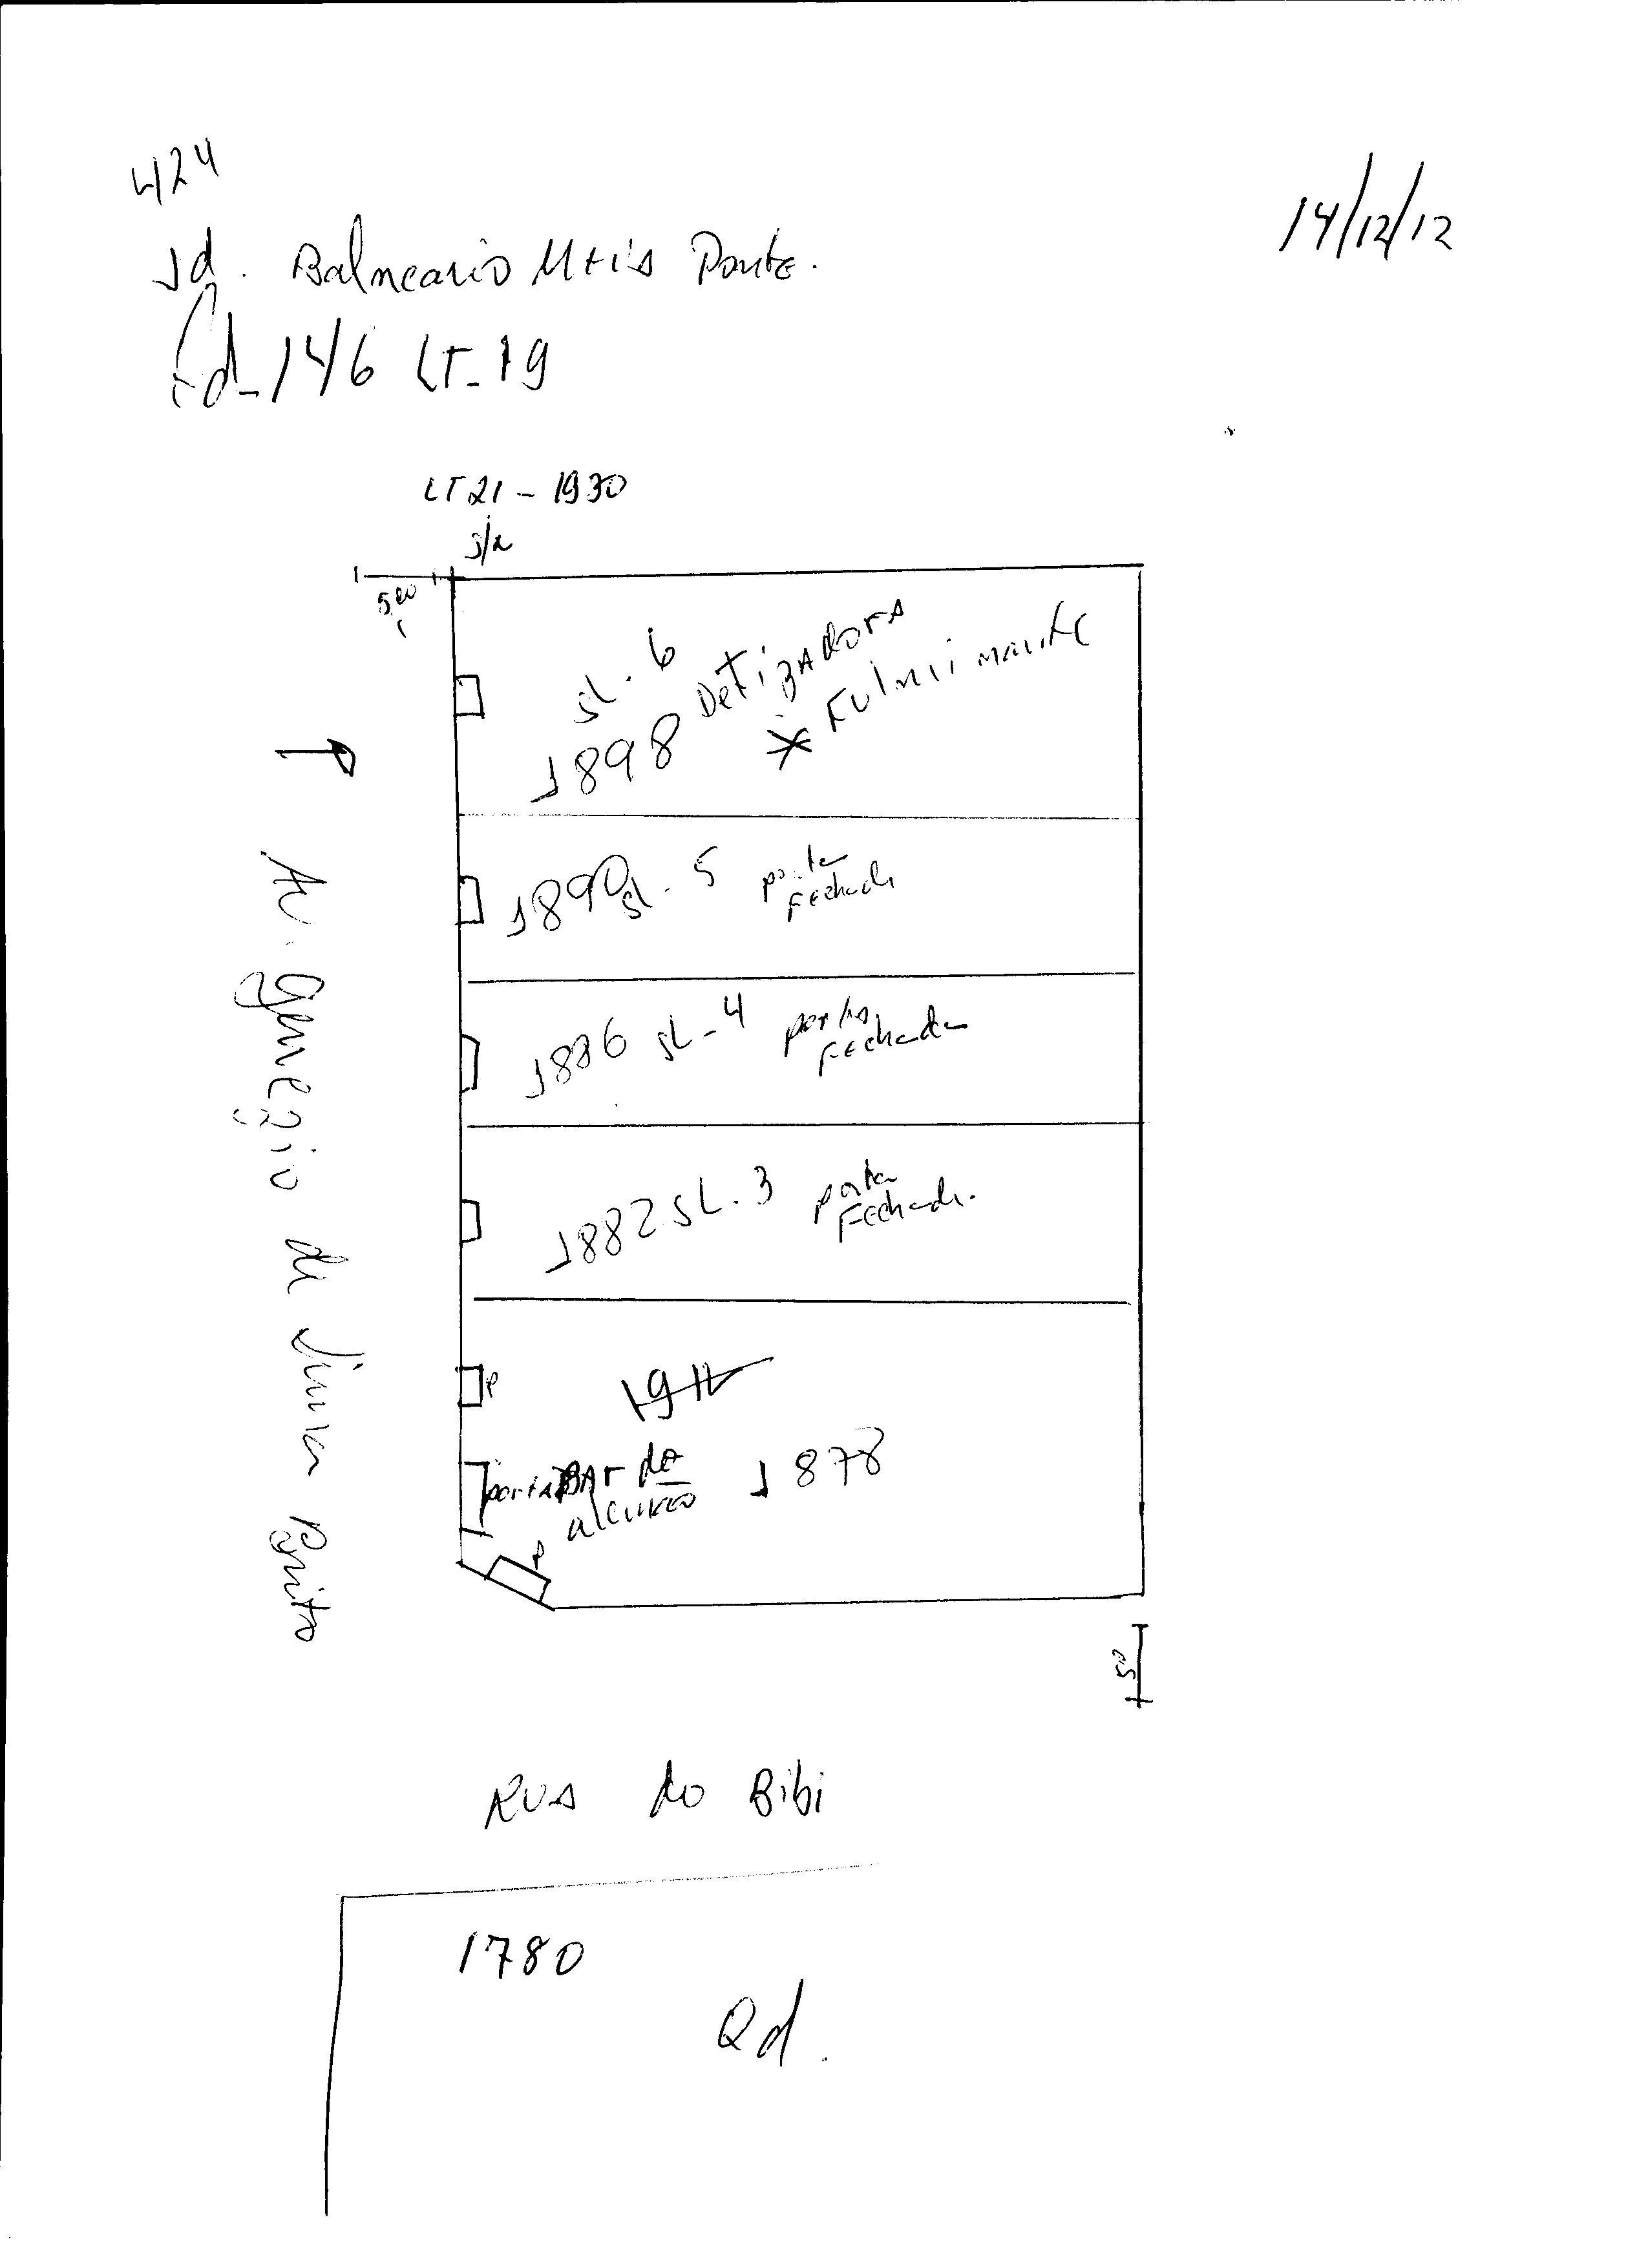 424
14/12/12
Jd. Balneario Meia Ponte.
Qd_146 LT_19
LT 21 - 1930
5,00
SL. 6
1898 Detizadora
* Fulminante
1890 SL. 5 porta
Fechada
1886 SL - 4 portas
Fechada
1882 SL. 3 porta
Fechada.
P
porta BAr do
1878
P
Av. Genezio de Lima Brito
5,00
RUA do Bibi
1780
Qd.